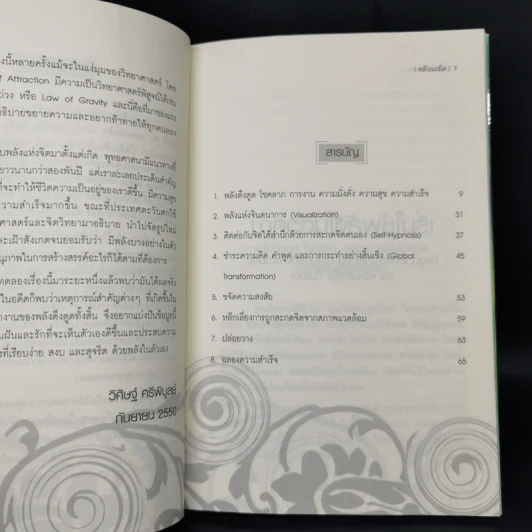 งนี้หลายครั้งแม้จะในแง่มุมของวิทยาศาสตร์ โดย
f Attraction มีความเป็นวิทยาศาสตร์พิสูจน์ได้เช่น
ถ่วง หรือ Law of Gravity และนี่คือที่มาของผลง
อธิบายขยายความและอยากท้าทายให้ทุกคนลอง
บพลังแห่งจิตมาตั้งแต่เกิด พุทธศาสนามีแนวทางที่
ยาวนานกว่าสองพันปี แต่เราละเลยประเด็นสำคัญ
ที่จะทำให้ชีวิตความเป็นอยู่ของเราดีขึ้น มีความสุข
ความสำเร็จมากขึ้น ขณะที่ประเทศตะวันตกใช้
าศาสตร์และจิตวิทยามาอธิบาย นำไปจัดรูปใหม่
และเฝ้าสังเกตจนยอมรับว่า มีพลังบางอย่างในตัว
นุภาพในการสร้างสรรค์อะไรก็ได้ตามที่ต้องการ
ทดลองเรื่องนี้มาระยะหนึ่งแล้วพบว่ามันได้ผลจริง
ในอดีตก็พบว่าเหตุการณ์สำคัญต่างๆ ที่เกิดขึ้นใน
างานของพลังดึงดูดทั้งสิ้น จึงอยากแบ่งปันข้อมูลนี้
ฝันและรักที่จะเห็นตัวเองดีขึ้นและประสบความ
งที่เรียบง่าย สงบ และสุจริต ด้วยพลังในตัวเอง
วิศิษฐ์ ศรีพิบูลย์
กันยายน 2550
| พลังเนรมิต | 7
สารบัญ
1. พลังดึงดูด โชคลาภ การงาน ความมั่งคั่ง ความสุข ความสำเร็จ 9
2. พลังแห่งจินตนาการ (Visualization) 31
3. ติดต่อกับจิตใต้สำนึกด้วยการสะกดจิตตนเอง (Self-Hypnosis) 37
4. ชำระความคิด คำพูด และการกระทำอย่างสิ้นเชิง (Global 45
Transformation)
5. ขจัดความสงสัย 53
6. หลีกเลี่ยงการถูกสะกดจิตจากสภาพแวดล้อม 59
7. ปล่อยวาง 63
8. ฉลองความสำเร็จ 65